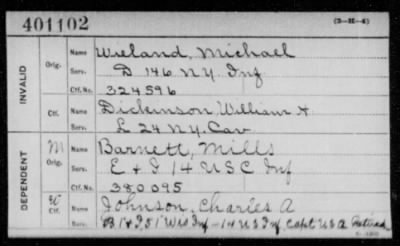 401102
(3-H-4)
INVALID
Orig. Name Wieland, Michael
Serv. D 146 N.Y. Inf
Ctf. No. 324596
Ctf. Name Dickinson, William H
Serv. L 24 N.Y. Cav
DEPENDENT
M Orig. Name Barnett, Mills
Serv. E + I 14 USC Inf
Ctf. No. 380095
Ctf. Name Johnson, Charles A
Serv. Wis Inf - 14 US Inf Capt USA Retired